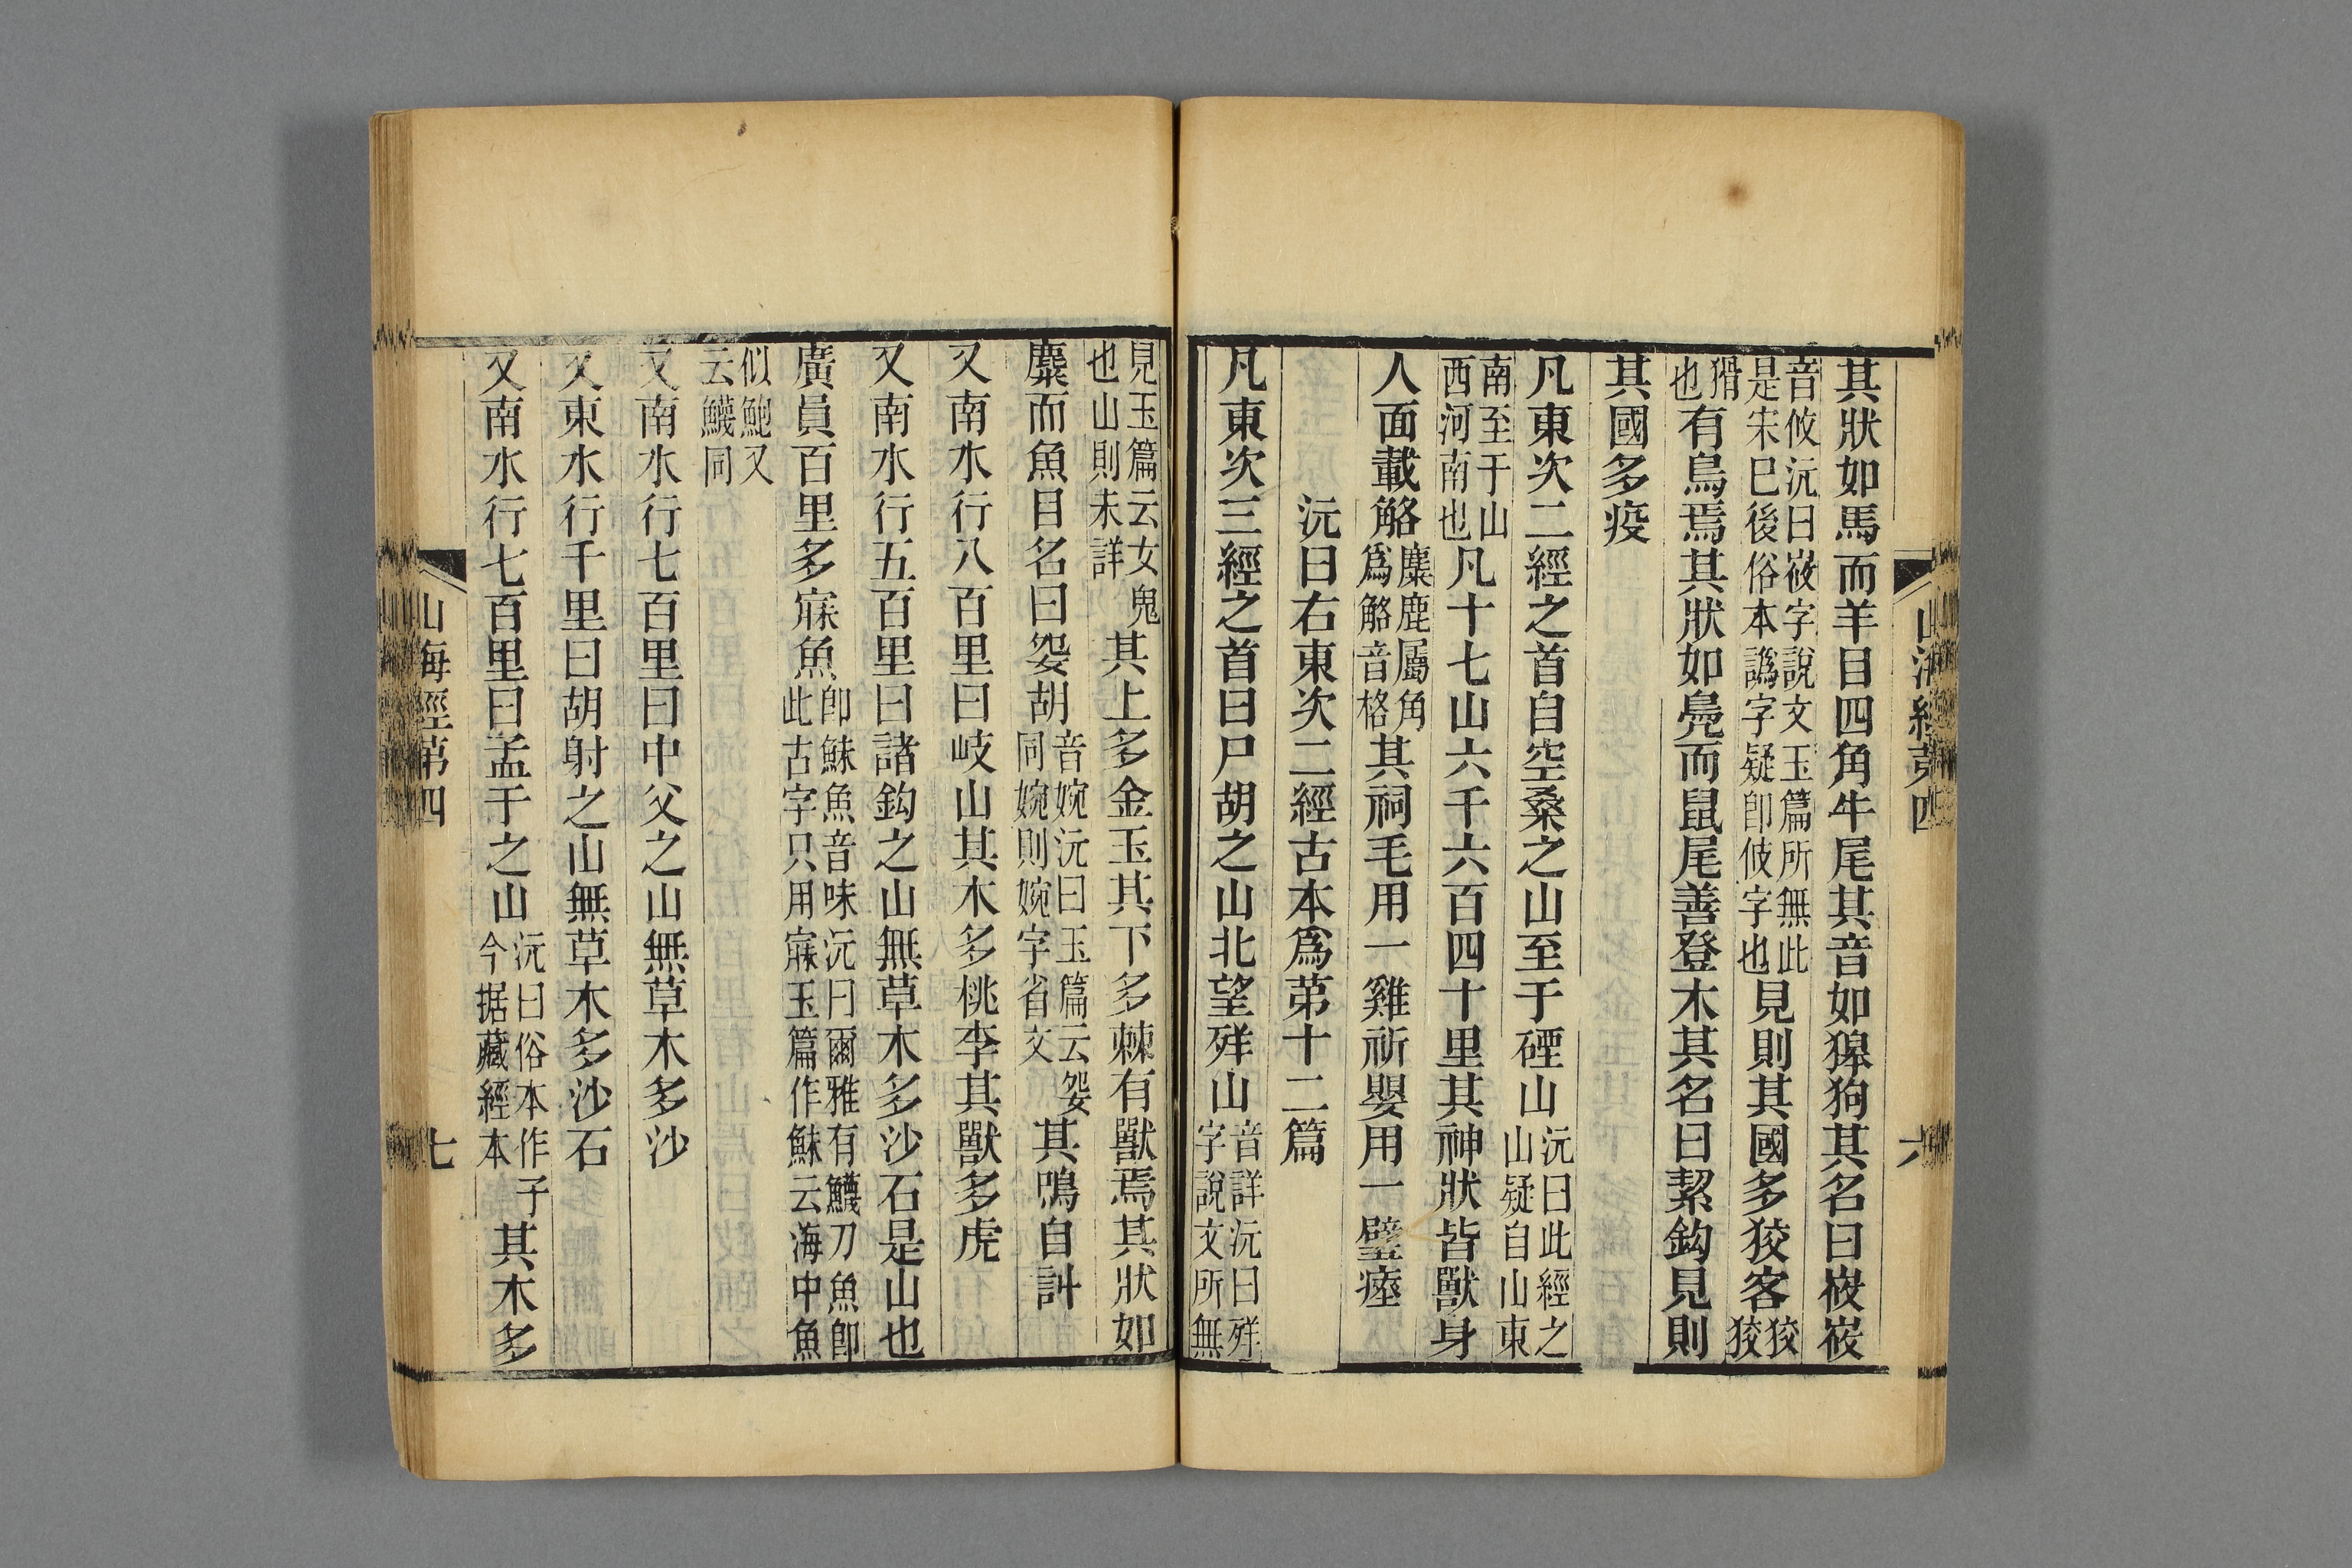 其狀如馬而羊目四角牛尾其音如獆狗其名曰峳峳
音攸沅曰峳字說文玉篇所無此
是宋已後俗本譌字疑即㑄字也
見則其國多狡客
狡
狡
猾
也
有鳥焉其狀如鳧而鼠尾善登木其名曰絜鈎見則
其國多疫
凡東次二經之首自空桑之山至于䃌山
沅曰此經之
山疑自山東
南至于山
西河南也
凡十七山六千六百四十里其神狀皆獸身
人面載觡
麋鹿屬角
爲觡音格
其祠毛用一雞祈嬰用一璧瘞
沅曰右東次二經古本爲第十二篇
凡東次三經之首曰尸胡之山北望𡵺山
音詳沅曰𡵺
字說文所無
山海經第四
六
見玉篇云女鬼
也山則未詳
其上多金玉其下多棘有獸焉其狀如
麋而魚目名曰妴胡
音婉沅曰玉篇云妴
同婉則婉字省文
其鳴自訆
又南水行八百里曰岐山其木多桃李其獸多虎
又南水行五百里曰諸鈎之山無草木多沙石是山也
廣員百里多寐魚
即鮇魚音味沅曰爾雅有鱴刀魚即
此古字只用寐玉篇作鮇云海中魚
似鮑又
云鱴同
又南水行七百里曰中父之山無草木多沙
又東水行千里曰胡射之山無草木多沙石
又南水行七百里曰孟于之山
沅曰俗本作子
今据藏經本
其木多
山海經第四
七